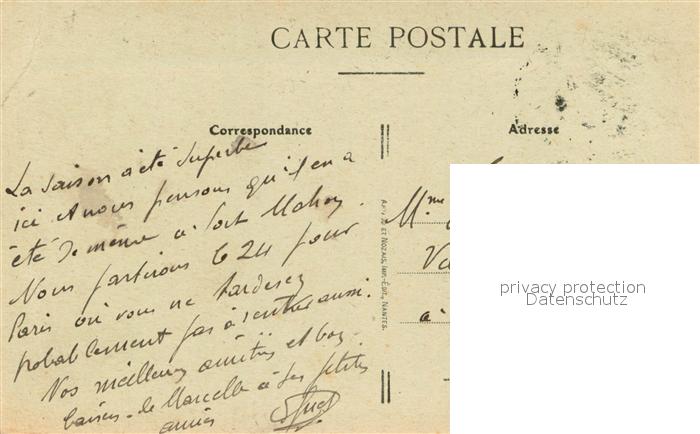 CARTE POSTALE
Correspondance
La saison a été superbe
ici et nous pensons qu'il en a
été de même à Port Mahon.
Nous partirons le 24 pour
Paris où vous ne tarderez
probablement pas à rentrer aussi.
Nos meilleures amitiés et bons
baisers de Marcelle à ses petites
amies
Adresse
Mme
à
ET NOZAIS, IMP.-ÉDIT., NANTES.
privacy protection
Datenschutz